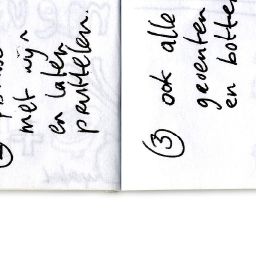 met wyn
en laten
pruttelen.
(3) ook alle
groenten
en botte